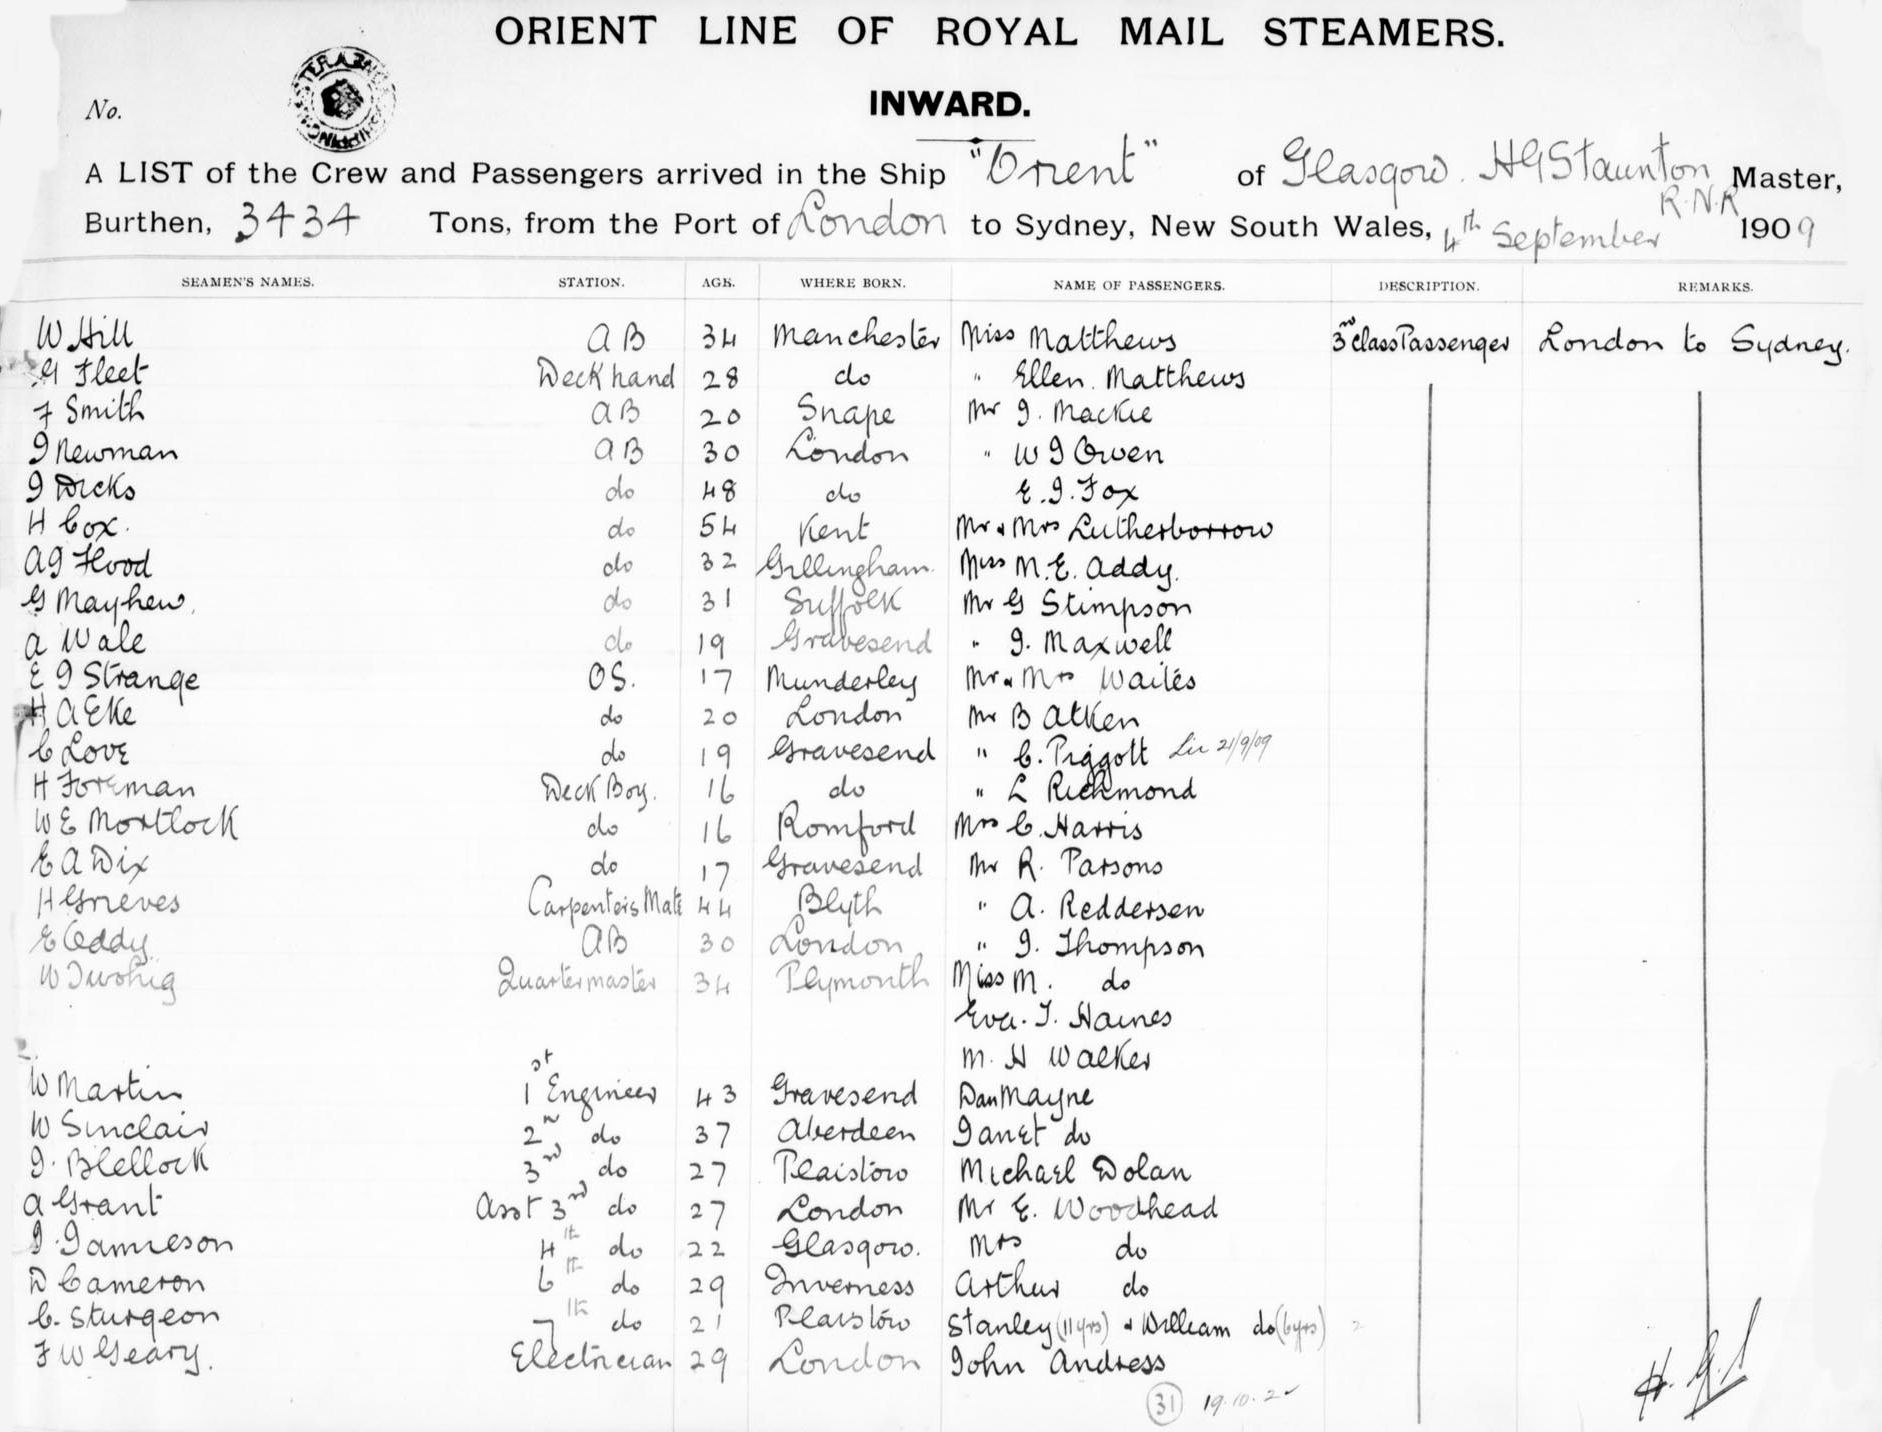 ORIENT LINE OF ROYAL MAIL STEAMERS.
INWARD.
No.
A LIST of the Crew and Passengers arrived in the Ship "Orient" of Glasgow. H G Staunton R.N.R Master,
Burthen, 3434 Tons, from the Port of London to Sydney, New South Wales, 4th September 1909
SEAMEN'S NAMES. STATION. AGE. WHERE BORN. NAME OF PASSENGERS. DESCRIPTION. REMARKS.
W Hill AB 34 Manchester Miss Matthews 3rd Class Passenger London to Sydney.
G Fleet Deck hand 28 do " Ellen. Matthews
F Smith AB 20 Snape Mr J. Mackie
J Newman AB 30 London " W J Owen
J Dicks do 48 do E. J. Fox
H Cox. do 54 Kent Mr & Mrs Lutherborrow
A J Flood do 32 Gillingham. Miss M. E. Addy.
G Mayhew. do 31 Suffolk Mr G Stimpson
A Wale do 19 Gravesend " J. Maxwell
E J Strange OS. 17 Munderley Mr & Mrs Wailes
H A Eke do 20 London Mr B Atken
C Love do 19 Gravesend " C. Piggott 21/9/09
H Foreman Deck Boy. 16 do " L Richmond
W E Mortlock do 16 Romford Mrs C. Harris
E A Dix do 17 Gravesend Mr R. Parsons
H Grieves Carpenters Mate 44 Blyth " A. Reddersen
E Addy AB 30 London " J. Thompson
W Twohig Quartermaster 34 Plymouth Miss M. do
Eva. T. Haines
M. H Walker
W Martin 1st Engineer 43 Gravesend Dan Mayne
W Sinclair 2nd do 37 Aberdeen Janet do
J. Blellock 3rd do 27 Plaistow Michael Dolan
A Grant Asst 3rd do 27 London Mr E. Woodhead
J. Jamieson 4th do 22 Glasgow. Mrs do
D Cameron 6th do 29 Inverness Arthur do
C. Sturgeon 7th do 21 Plaistow Stanley (11 yrs) & William do (6 yrs)
F W Geary. Electrician 29 London John Andress
31 19.10.2
H. G. S